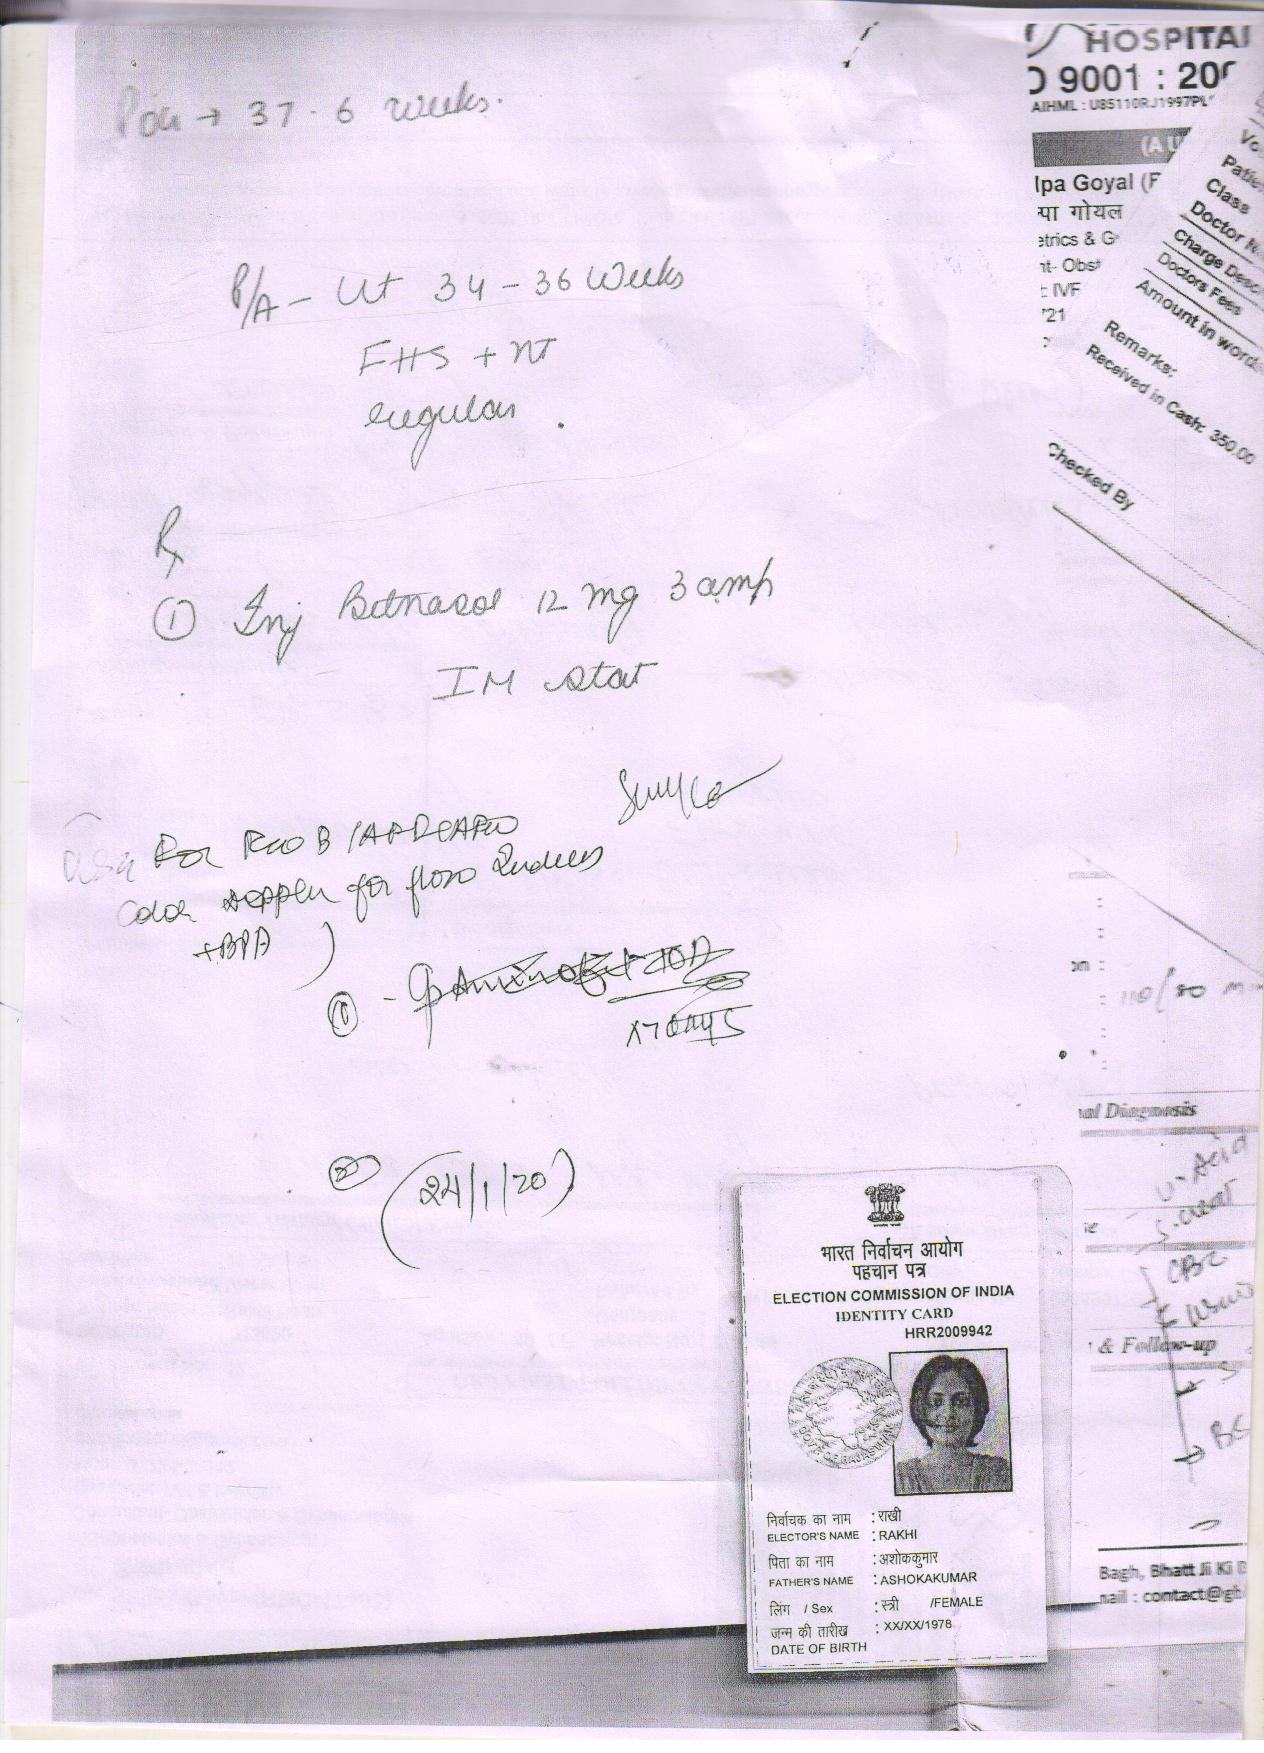 POG → 37.6 weeks.
P/A - Ut 34 - 36 Weeks
FHS + NT
regular.
Rx
① Inj Betnasol 12 mg 3 amp
IM stat
For
Color Doppler for flow
+ BPP )
①
x 7 days
② (24/1/20)
HOSPITA
9001 : 20
AIHML : U85110RJ1997PL
(A U
lpa Goyal (
गोयल
etrics & G
nt- Obst
: IVF
'21
Patie
Class
Doctor N
Charge Desc
Doctors Fees
Amount in word
Remarks:
Received in Cash: 350.00
Checked By
110/80 m
nal Diagnosis
U-Acid
S.creat
CBC
& Follow-up
Bagh, Bhatt Ji Ki B
nail : contact@gh
भारत निर्वाचन आयोग
पहचान पत्र
ELECTION COMMISSION OF INDIA
IDENTITY CARD
HRR2009942
निर्वाचक का नाम : राखी
ELECTOR'S NAME : RAKHI
पिता का नाम : अशोककुमार
FATHER'S NAME : ASHOKAKUMAR
लिंग / Sex : स्त्री /FEMALE
जन्म की तारीख : XX/XX/1978
DATE OF BIRTH